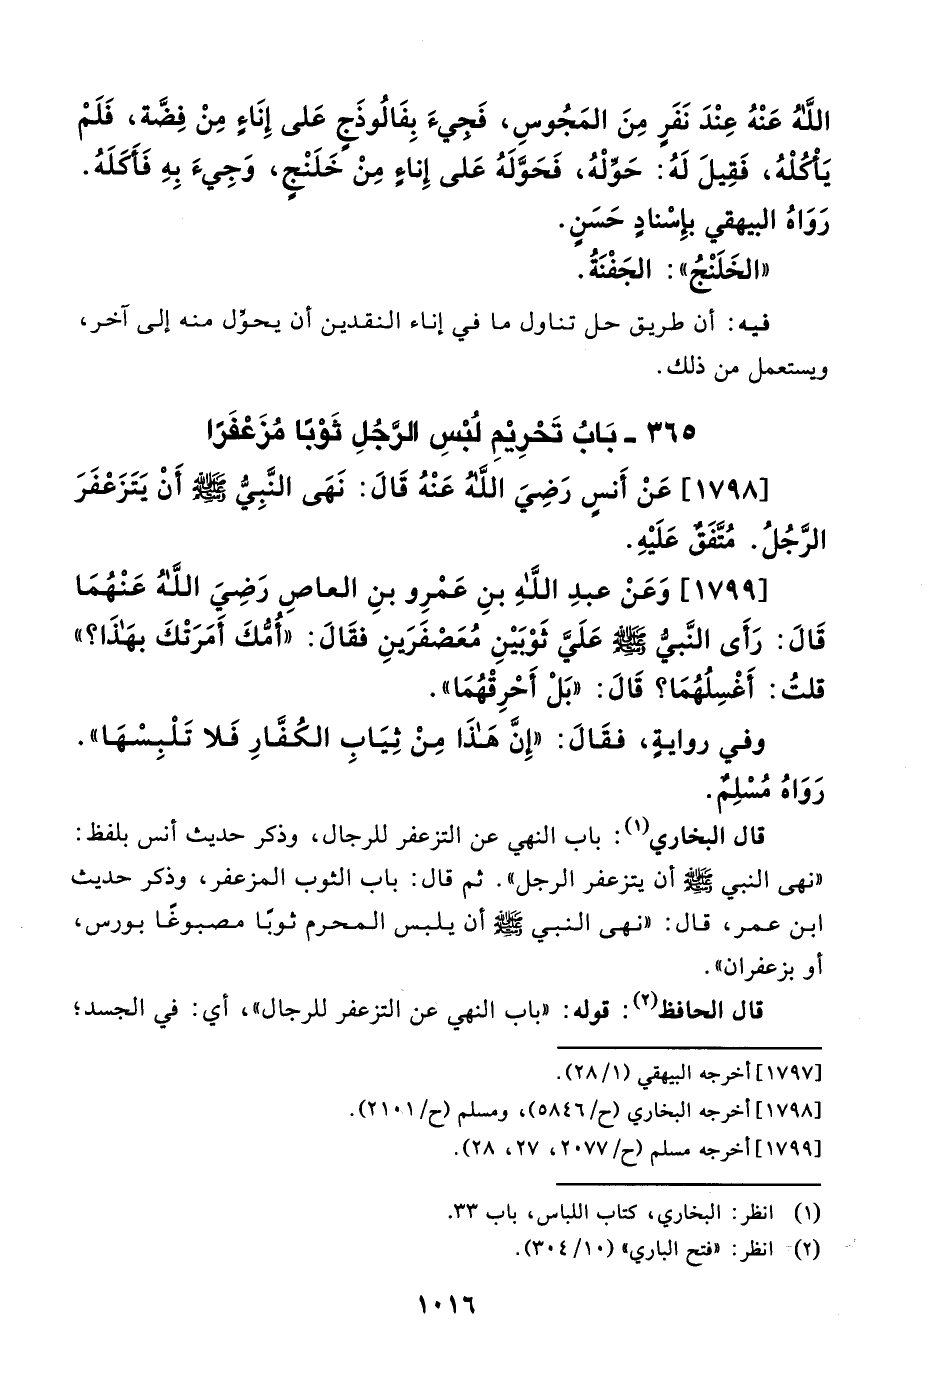 اللَّهُ عَنْهُ عِنْدَ نَفَرٍ مِنَ المَجُوسِ، فَجِيءَ بِفَالُوذَجٍ عَلى إِنَاءٍ مِنْ فِضَّة، فَلَمْ
يَأْكُلْهُ، فَقِيلَ لَهُ: حَوِّلْهُ، فَحَوَّلَهُ عَلى إِناءٍ مِنْ خَلَنْجٍ، وَجِيءَ بِهِ فَأَكَلَهُ.
رَوَاهُ البيهقي بإِسْنادٍ حَسَنٍ.
«الخَلَنْجُ»: الجَفْنَةُ.
فيه: أن طريق حل تناول ما في إناء النقدين أن يحوِّل منه إلى آخر،
ويستعمل من ذلك.
٣٦٥ ـ بَابُ تَحْرِيْمِ لُبْسِ الرَّجُلِ ثَوْبًا مُزَعْفَرًا
[١٧٩٨] عَنْ أَنسٍ رَضِيَ اللَّهُ عَنْهُ قَالَ: نَهَى النَّبِيُّ ﷺ أَنْ يَتَزَعْفَرَ
الرَّجُلُ. مُتَّفَقٌ عَلَيْهِ.
[١٧٩٩] وَعَنْ عبدِ اللَّهِ بنِ عَمْرِو بنِ العاصِ رَضِيَ اللَّهُ عَنْهُمَا
قَالَ: رَأَى النَّبِيُّ ﷺ عَلَيَّ ثَوْبَيْنِ مُعَصْفَرَينِ فقَالَ: «أُمُّكَ أَمَرَتْكَ بِهَذَا؟»
قلتُ: أَغْسِلُهُمَا؟ قَالَ: «بَلْ أَحرِقْهُمَا».
وفي روايةٍ، فقَالَ: «إِنَّ هَذَا مِنْ ثِيَابِ الكُفَّارِ فَلا تَلْبِسْهَا».
رَوَاهُ مُسْلِمٌ.
قال البخاري(١): باب النهي عن التزعفر للرجال، وذكر حديث أنس بلفظ:
«نهى النبي ﷺ أن يتزعفر الرجل». ثم قال: باب الثوب المزعفر، وذكر حديث
ابن عمر، قال: «نهى النبي ﷺ أن يلبس المحرم ثوبًا مصبوغًا بورس،
أو بزعفران».
قال الحافظ(٢): قوله: «باب النهي عن التزعفر للرجال»، أي: في الجسد؛
[١٧٩٧] أخرجه البيهقي (١/ ٢٨).
[١٧٩٨] أخرجه البخاري (ح/ ٥٨٤٦)، ومسلم (ح/ ٢١٠١).
[١٧٩٩] أخرجه مسلم (ح/ ٢٠٧٧، ٢٧، ٢٨).
(١) انظر: البخاري، كتاب اللباس، باب ٣٣.
(٢) انظر: «فتح الباري» (١٠/ ٣٠٤).
١٠١٦